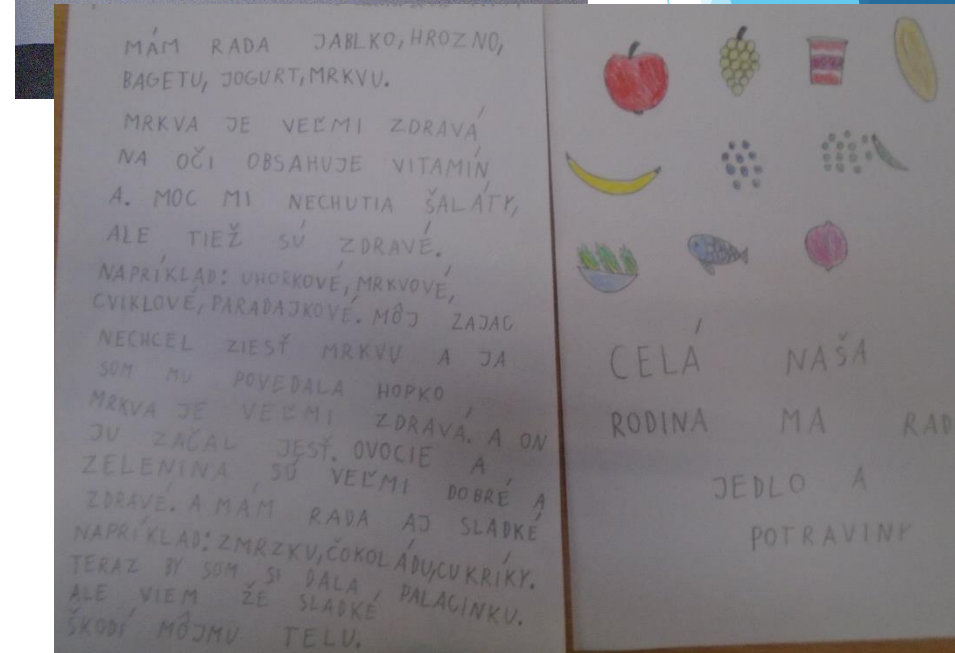 MÁM RADA JABLKO, HROZNO,
BAGETU, JOGURT, MRKVU.
MRKVA JE VEĽMI ZDRAVÁ
NA OČI OBSAHUJE VITAMÍN
A. MOC MI NECHUTIA ŠALÁTY,
ALE TIEŽ SÚ ZDRAVÉ.
NAPRÍKLAD: UHORKOVÉ, MRKVOVÉ,
CVIKLOVÉ, PARADAJKOVÉ. MÔJ ZAJAC
NECHCEL ZIESŤ MRKVU A JA
SOM MU POVEDALA HOPKO
MRKVA JE VEĽMI ZDRAVÁ. A ON
JU ZAČAL JESŤ. OVOCIE A
ZELENINA SÚ VEĽMI DOBRÉ A
ZDRAVÉ. A MÁM RADA AJ SLADKÉ
NAPRÍKLAD: ZMRZKU, ČOKOLÁDU, CUKRÍKY.
TERAZ BY SOM SI DALA PALACINKU.
ALE VIEM ŽE SLADKÉ
ŠKODÍ MÔJMU TELU.
CELÁ NAŠA
RODINA MA RAD
JEDLO A
POTRAVINY